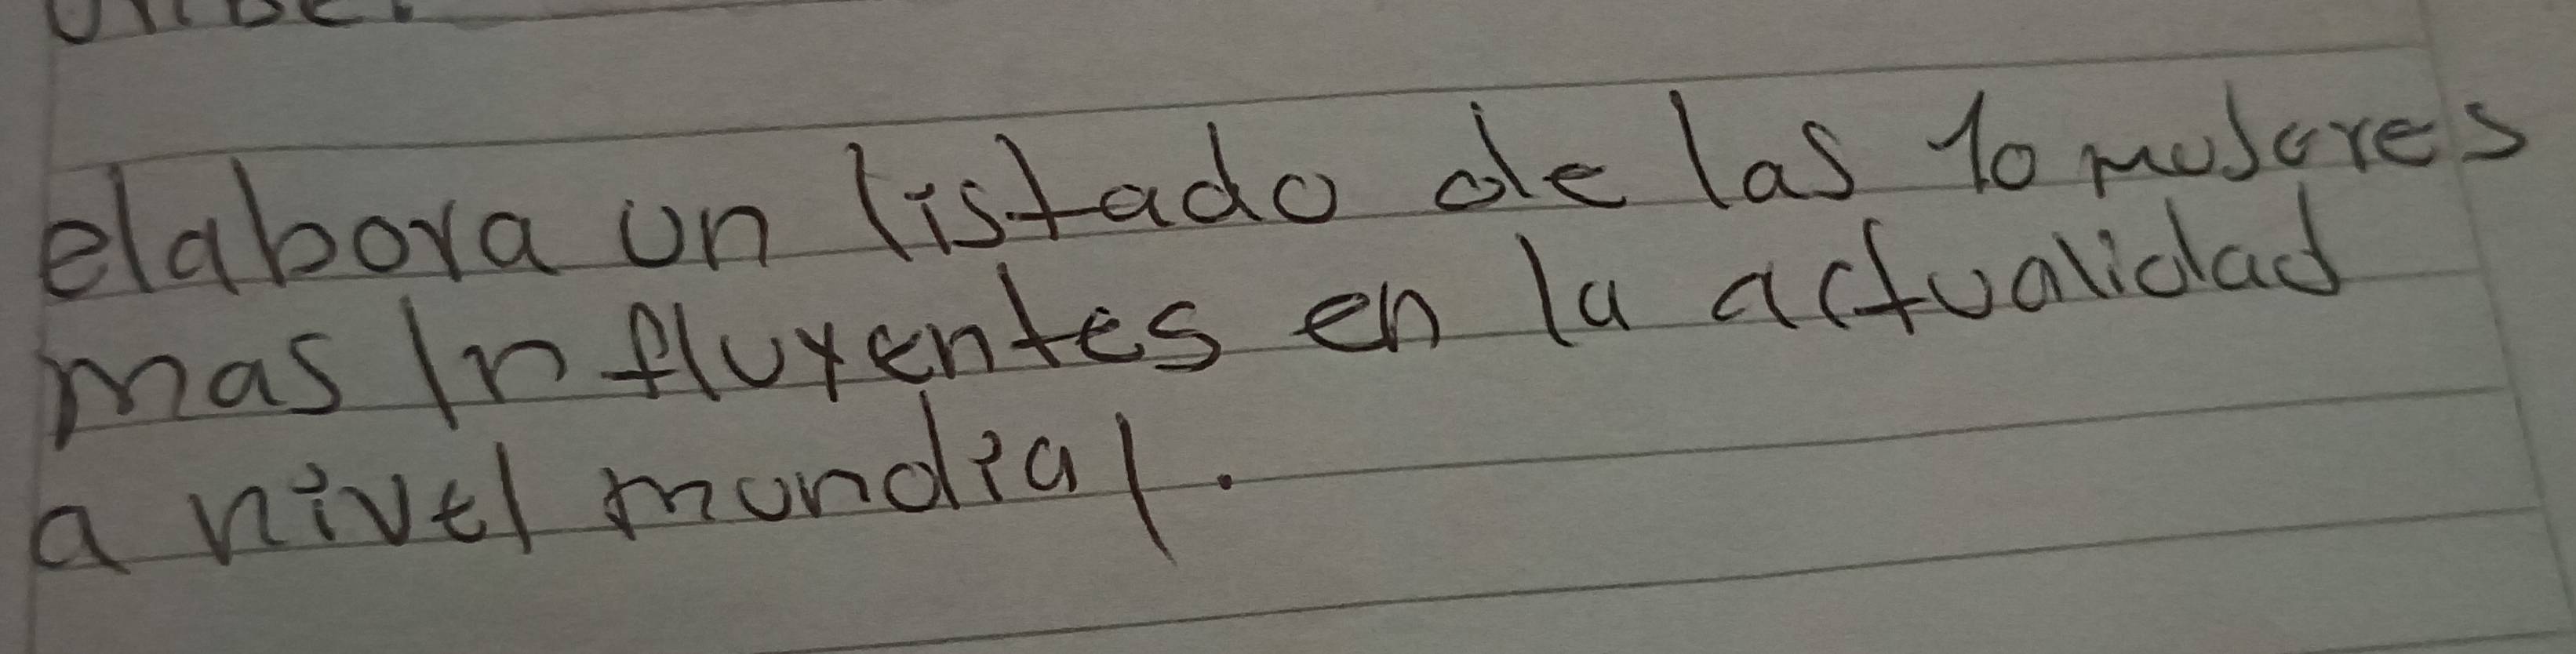 elabora un listado de las 10 mujeres
mas Influyentes en la actualidad
a nivel mundial.